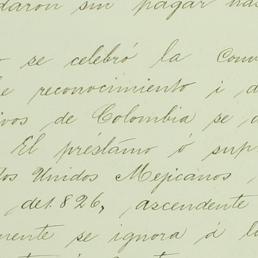 daron sin pagar has
se celebró la Conv
e reconocimiento i d
ivos de Colombia se a
El préstamo ó sup
tos Unidos Mejicanos
de 1826, ascendente
rente se ignora á la